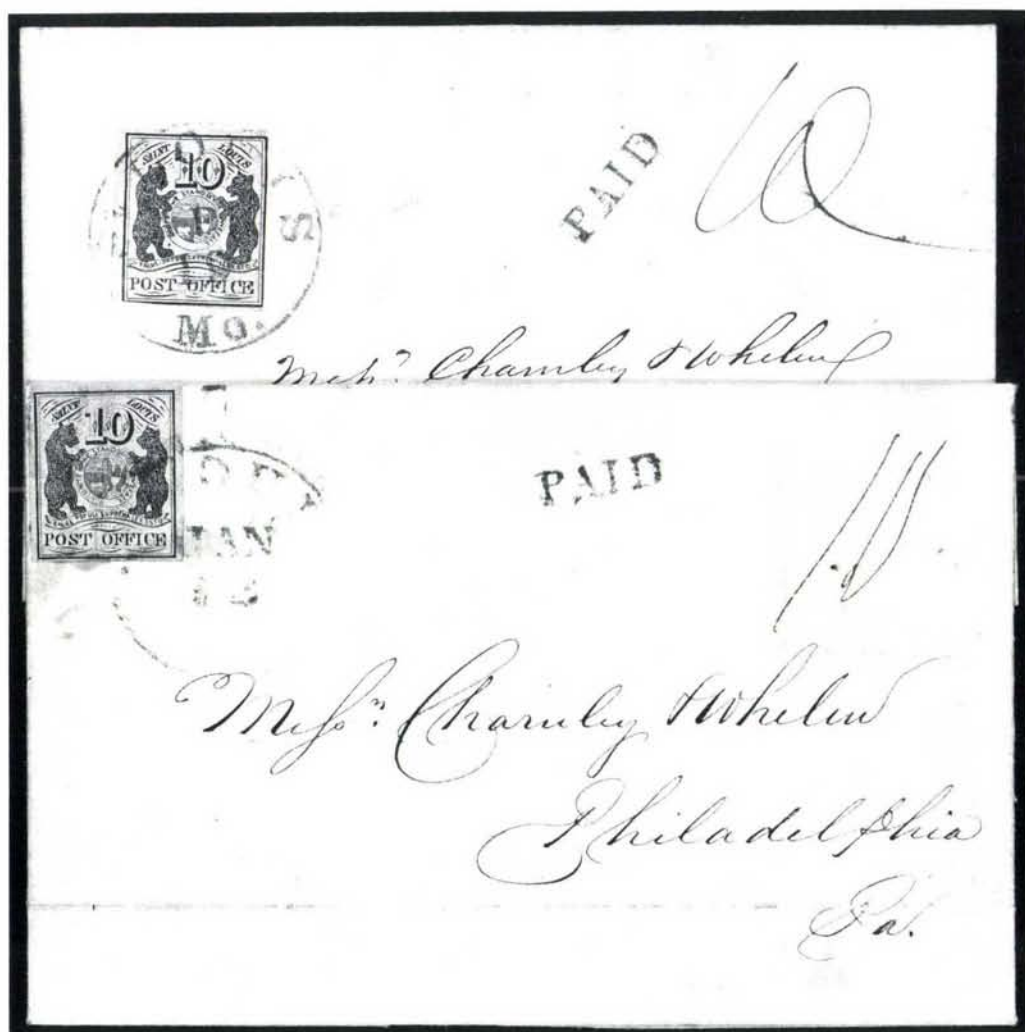 SAINT LOUIS
10
POST OFFICE
S
Mo.
PAID
10
Messrs. Charnley & Whelen
SAINT LOUIS
10
POST OFFICE
JAN
PAID
10
Messrs. Charnley & Whelen
Philadelphia
Pa.